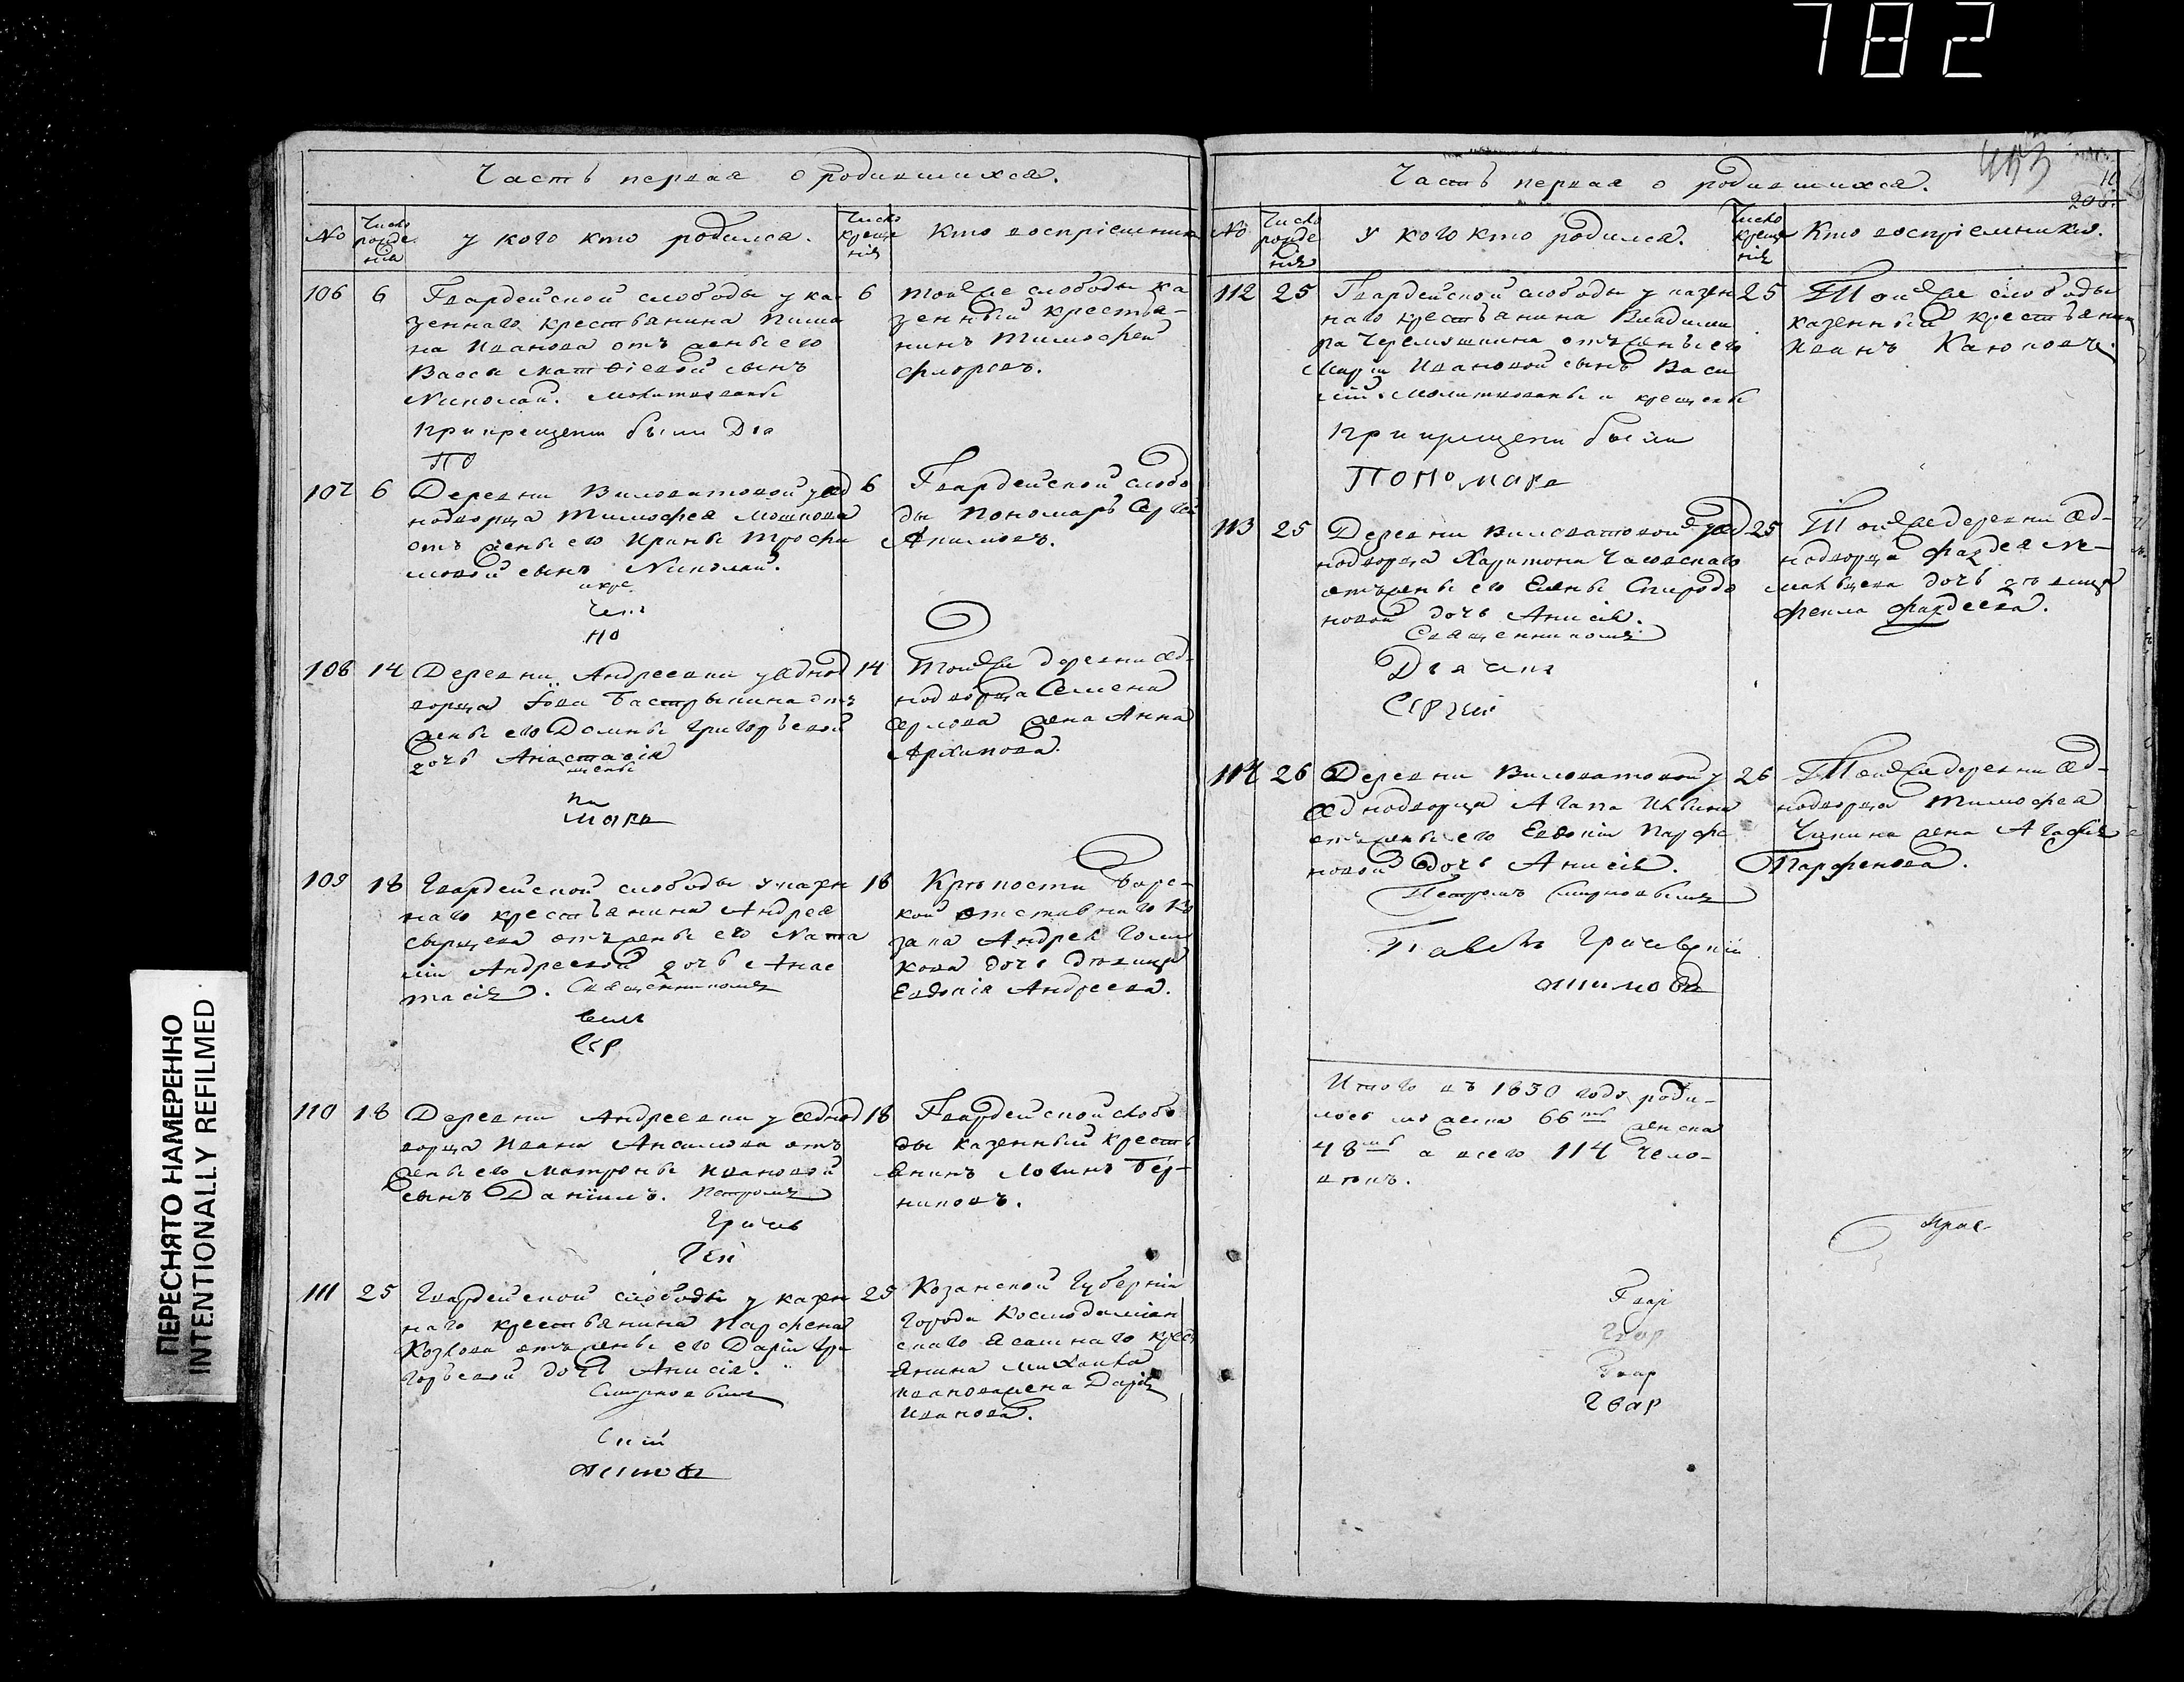 782
ПЕРЕСНЯТО НАМЕРЕННО
INTENTIONALLY REFILMED
Часть первая о родившихся.
No
Число рожде нія
у кого кто родился.
Число креще нія
Кто воспріемники
106 6 Гвардейской слободы у ка
зеннаго крестьянина Пима
на Иванова отъ жены его
Вассы Матвіевой сынъ
Николай. Молитвованъ
При крещеніи были Діа
ПО
6 Той же слободы ка
зенный крестья-
нинъ Тимофей
Флоровъ.
107 6 Деревни Виловатовой у од
нодворца Тимофея Мошкова
отъ жены его Ирины Трофи
мовой сынъ Николай.
и кре
но
6 Гвардейской слобо
ды Пономарь Сергей
Акимовъ.
108 14 Деревни Андреевки у однод
ворца Іова Бастрыкина отъ
жены его Домны Григорьевой
дочь Анастасія
щены
марь
14 Той же деревни од-
нодворца Семена
Орлова жена Анна
Архипова.
109 18 Гвардейской слободы у казен
наго крестьянина Андрея
Сырцева отъ жены его Ната
ліи Андреевой дочь Анас
тасія. Священникомъ
Сер
18 Крѣпости Борс-
кой отставнаго Ка
зака Андрея Голи
кова дочь дѣвица
Евдокія Андреева.
110 18 Деревни Андреевки у однод
ворца Ивана Ансимова отъ
жены его Матроны Ивановой
сынъ Даніилъ. Петромъ
Гричев
гей
18 Гвардейской слобо
ды казенный кресть
янинъ Логинъ Бер-
никовъ.
111 25 Гвардейской слободы у казен
наго крестьянина Парфена
Козлова отъ жены его Дарьи Гри
горьевой дочь Анисія.
Смирновымъ
скій
Акимовъ
25 Козанской Губерніи
города Космодаміан
скаго ясашнаго крест
янина Михаила
Иванова жена Дарія
Иванова.
Часть первая о родившихся.
No
Число рожде нія
У кого кто родился.
Число креще нія
Кто воспріемники.
112 25 Гвардейской слободы у казен
наго крестьянина Владими
ра Черемушкина отъ жены его
Маріи Ивановой сынъ Васи
лій. Молитвованы и крещены
При крещеніи были
Пономарь
25 Той же слободы
казенный крестьянин
Иванъ Каюковъ.
113 25 Деревни Виловатовой у од
нодворца Харитона Часовскаго
отъ жены его Елены Спиридо
новой дочь Анисія.
Священникомъ
Дьячик
Сергей
25 Той же деревни од-
нодворца Фадея Не-
мальцева дочь дѣвица
Фекла Фаддеева.
114 26 Деревни Виловатовой у
однодворца Агапа Ильина
отъ жены его Евдокіи Парфе
новой дочь Анисія.
Петромъ Смирновымъ
Павелъ Гричевскій
Акимовъ
26 Той же деревни од-
нодворца Тимофея
Чикина жена Агафія
Парфенова.
Итого въ 1830 году роди-
лось мужеска 66ть женска
48мь а всего 114 чело-
вѣкъ.
Гвар
Гвар
Гвар
Гвар